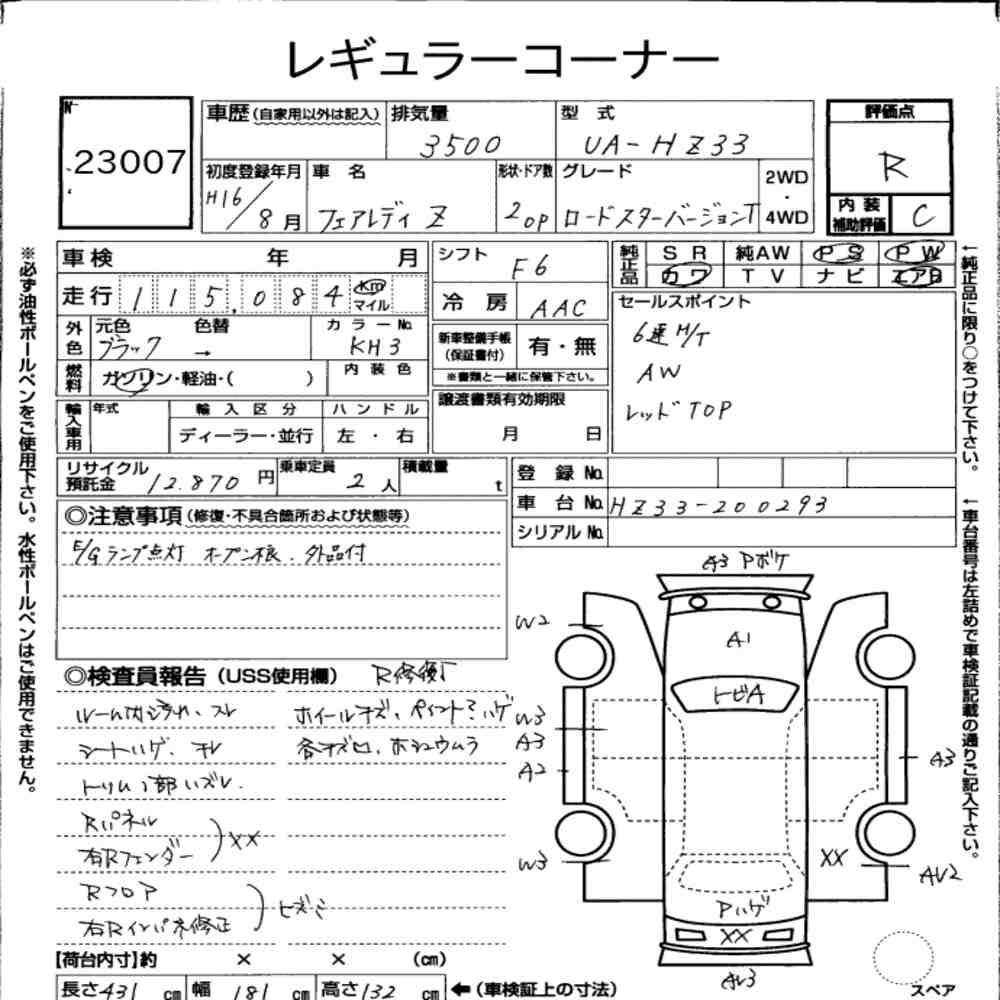 レギュラーコーナー
№
23007
車歴(自家用以外は記入)
排気量
3500
型 式
UA-HZ33
評価点
R
初度登録年月
H16/8月
車 名
フェアレディ Z
形状・ドア数
2 OP
グレード
ロードスターバージョンT
2WD
・
4WD
内装
補助評価
C
※必ず油性ボールペンをご使用下さい。水性ボールペンはご使用できません。
車検 年 月
走行 115,084 km マイル
外色
元色
ブラック
色替
→
カラーNo.
KH3
燃料
ガソリン・軽油・( )
内装色
輸入車用
年式
輸入区分
ディーラー・並行
ハンドル
左・右
シフト
F6
冷房
AAC
新車整備手帳
(保証書付)
有・無
※書類と一緒に保管下さい。
譲渡書類有効期限
月 日
純正品
SR 純AW PS PW
カワ TV ナビ エアB
セールスポイント
6速M/T
AW
レッドTOP
←純正品に限り○をつけて下さい。
リサイクル
預託金
12.870円
乗車定員
2人
積載量
t
登録No.
車台No. HZ33-200293
シリアルNo.
←車台番号は左詰めで車検証記載の通りご記入下さい。
◎注意事項(修復・不具合箇所および状態等)
E/Gランプ点灯 オープン根. 外品付
◎検査員報告(USS使用欄)
ホイールキズ、ペイントミハゲ
シートハゲ、
R パネル
右Rフェンダー
XX
Rフロア
右Rインパネ修正
A3 Pボケ
W2
A1
トビA
W3
A3
A2
A3
W3
XX
AV2
Pハゲ
XX
AV3
スペア
【荷台内寸】約 × × (cm)
長さ431cm 幅181cm 高さ132cm ←(車検証上の寸法)